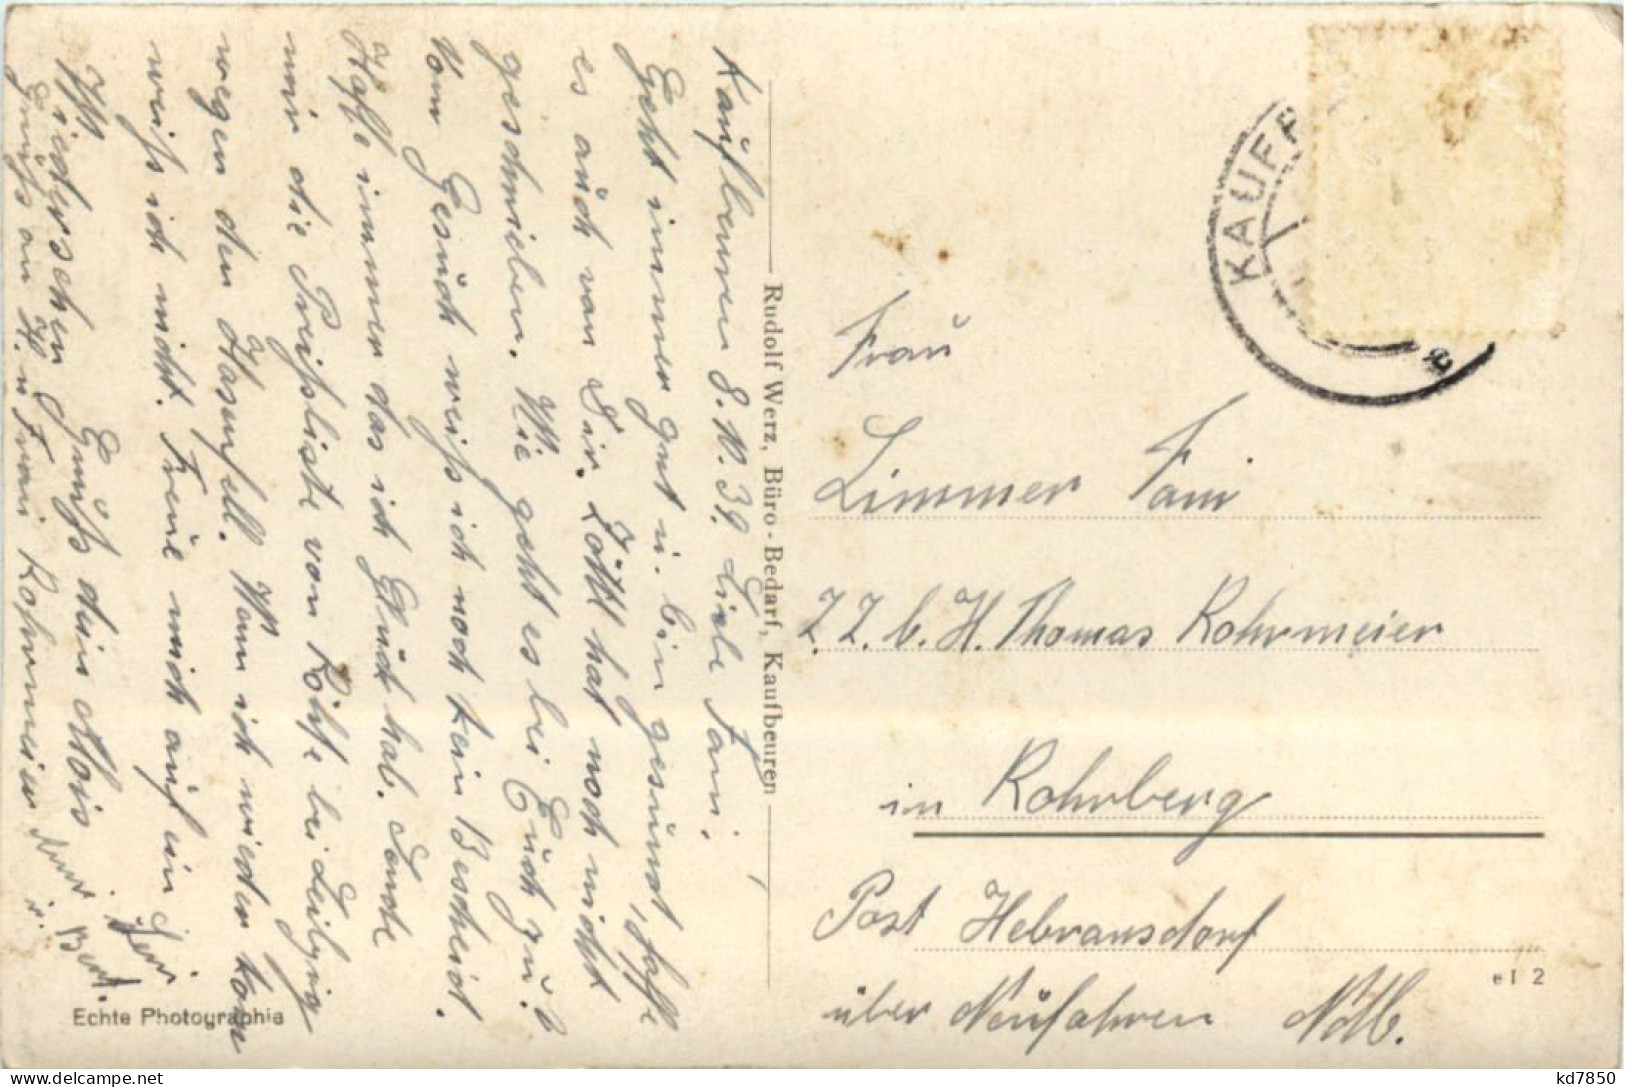 Kaufbeuren 8. V. 39. Liebe Fani!
Geht immer gut u. bin gesund, hoffe
es auch von Dir. Lottl hat noch nicht
geschrieben. Wie geht es bei Euch zu?
Vom Gesuch weiß ich noch kein Bescheid.
Hoffe immer das ich Glück hab. Sende
mir die Preißliste von Röhß bei Leibzig
wegen den Hasenfell. Wann ich wieder kom
weiß ich nicht. Freue mich auf ein
Wiedersehen Gruß dein Alois
Gruß an H. u Frau Rohrmeier
Rudolf Werz, Büro-Bedarf, Kaufbeuren
Echte Photographie
KAUFB
Frau
Limmer Fani
Z. Z. b. H. Thomas Rohrmeier
in Rohrberg
Post Hebransdorf
über Neufahren Ndb.
e1 2
kd7850